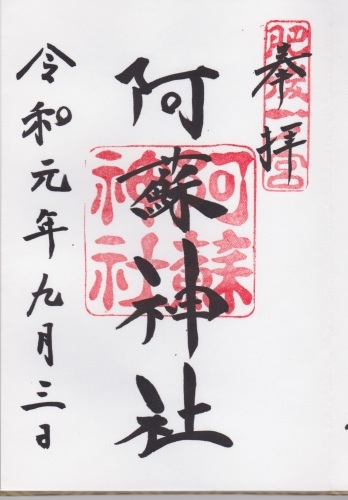 奉拝
肥後一宮
阿蘇神社
阿蘇神社
令和元年九月三日